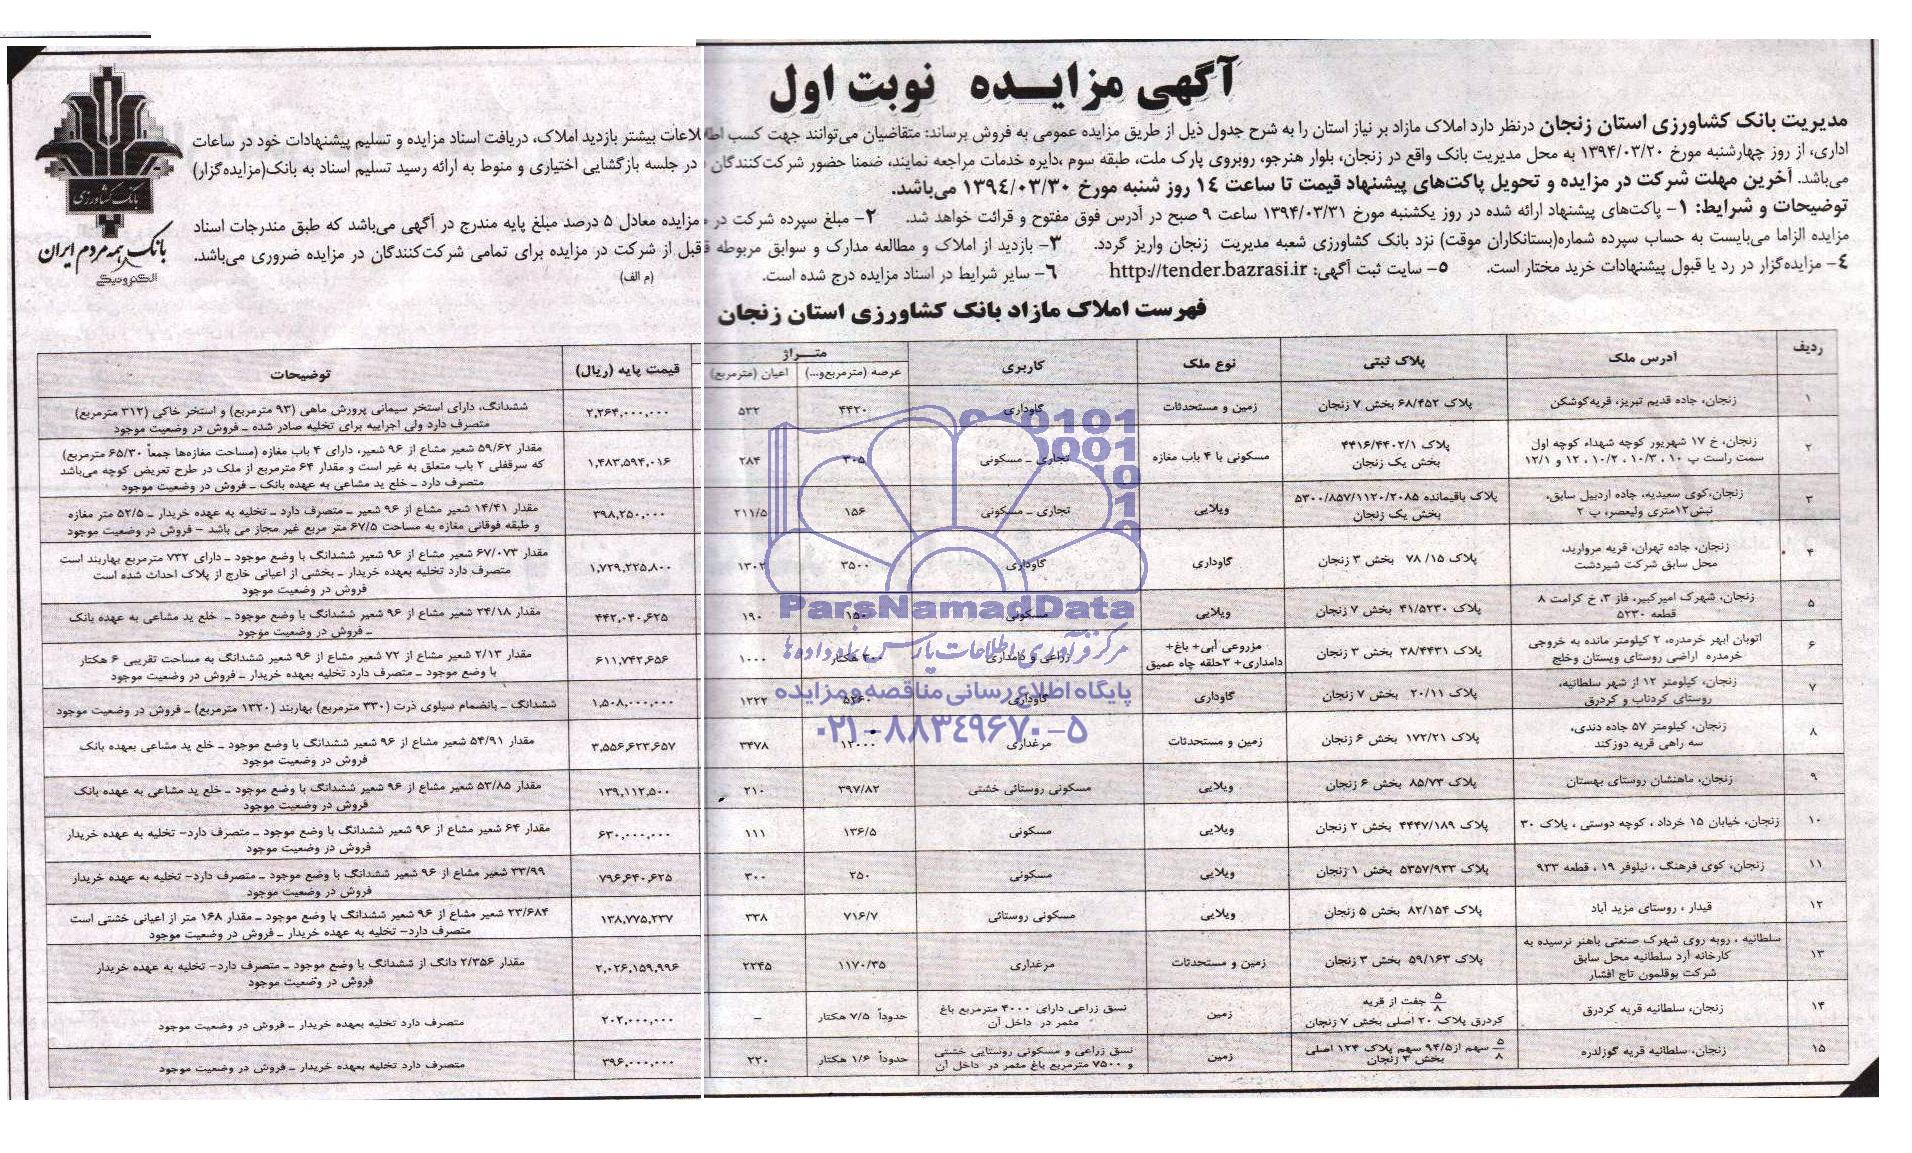 آگهی مزایـــده   نوبت اول
مدیریت بانک کشاورزی استان زنجان درنظر دارد املاک مازاد بر نیاز استان را به شرح جدول ذیل از طریق مزایده عمومی به فروش برساند: متقاضیان می‌توانند جهت کسب اطلاعات بیشتر بازدید املاک، دریافت اسناد مزایده و تسلیم پیشنهادات خود در ساعات
اداری، از روز چهارشنبه مورخ ۱۳۹۴/۰۳/۲۰ به محل مدیریت بانک واقع در زنجان، بلوار هنرجو، روبروی پارک ملت، طبقه سوم ،دایره خدمات مراجعه نمایند، ضمنا حضور شرکت‌کنندگان در جلسه بازگشایی اختیاری و منوط به ارائه رسید تسلیم اسناد به بانک(مزایده‌گزار)
می‌باشد. آخرین مهلت شرکت در مزایده و تحویل پاکت‌های پیشنهاد قیمت تا ساعت ۱۴ روز شنبه مورخ ۱۳۹۴/۰۳/۳۰ می‌باشد.
توضیحات و شرایط: ۱- پاکت‌های پیشنهاد ارائه شده در روز یکشنبه مورخ ۱۳۹۴/۰۳/۳۱ ساعت ۹ صبح در آدرس فوق مفتوح و قرائت خواهد شد. ۲- مبلغ سپرده شرکت در مزایده معادل ۵ درصد مبلغ پایه مندرج در آگهی می‌باشد که طبق مندرجات اسناد
مزایده الزاما می‌بایست به حساب سپرده شماره(بستانکاران موقت) نزد بانک کشاورزی شعبه مدیریت زنجان واریز گردد. ۳- بازدید از املاک و مطالعه مدارک و سوابق مربوطه قبل از شرکت در مزایده برای تمامی شرکت‌کنندگان در مزایده ضروری می‌باشد.
۴- مزایده‌گزار در رد یا قبول پیشنهادات خرید مختار است. ۵- سایت ثبت آگهی: http://tender.bazrasi.ir ۶- سایر شرایط در اسناد مزایده درج شده است. (م الف)
بانک کشاورزی
بانک همه مردم ایران
الکترونیکی
فهرست املاک مازاد بانک کشاورزی استان زنجان
ردیف آدرس ملک پلاک ثبتی نوع ملک کاربری متـــراژ عرصه (مترمربع‌و...) اعیان (مترمربع) قیمت پایه (ریال) توضیحات
۱ زنجان، جاده قدیم تبریز، قریه‌کوشکن پلاک ۶۸/۴۵۲ بخش ۷ زنجان زمین و مستحدثات گاوداری ۴۴۲۰ ۵۳۲ ۲,۲۶۴,۰۰۰,۰۰۰ ششدانگ، دارای استخر سیمانی پرورش ماهی (۹۳ مترمربع) و استخر خاکی (۳۱۲ مترمربع)
متصرف دارد ولی اجراییه برای تخلیه صادر شده ـ فروش در وضعیت موجود
۲ زنجان، خ ۱۷ شهریور کوچه شهداء کوچه اول
سمت راست پ ۱۰ ، ۱۰/۳ ، ۱۰/۲ ، ۱۲ و ۱۲/۱ پلاک ۴۴۱۶/۴۴۰۲/۱
بخش یک زنجان مسکونی با ۴ باب مغازه تجاری ـ مسکونی ۳۰۵ ۲۸۴ ۱,۴۸۳,۵۹۴,۰۱۶ مقدار ۵۹/۶۲ شعیر مشاع از ۹۶ شعیر، دارای ۴ باب مغازه (مساحت مغازه‌ها جمعاً ۶۵/۳۰ مترمربع)
که سرقفلی ۲ باب متعلق به غیر است و مقدار ۶۴ مترمربع از ملک در طرح تعریض کوچه می‌باشد
متصرف دارد ـ خلع ید مشاعی به عهده بانک ـ فروش در وضعیت موجود
۳ زنجان،کوی سعیدیه، جاده اردبیل سابق،
نبش۱۲متری ولیعصر، پ ۲ پلاک باقیمانده ۵۳۰۰/۸۵۷/۱۱۲۰/۲۰۸۵
بخش یک زنجان ویلایی تجاری ـ مسکونی ۱۵۶ ۲۱۱/۵ ۳۹۸,۲۵۰,۰۰۰ مقدار ۱۴/۴۱ شعیر مشاع از ۹۶ شعیر ـ متصرف دارد ـ تخلیه به عهده خریدار ـ ۵۲/۵ متر مغازه
و طبقه فوقانی مغازه به مساحت ۶۷/۵ متر مربع غیر مجاز می باشد - فروش در وضعیت موجود
۴ زنجان، جاده تهران، قریه مروارید،
محل سابق شرکت شیردشت پلاک ۷۸ /۱۵ بخش ۳ زنجان گاوداری گاوداری ۳۵۰۰ ۱۳۰۲ ۱,۷۲۹,۲۲۵,۸۰۰ مقدار ۶۷/۰۷۳ شعیر مشاع از ۹۶ شعیر ششدانگ با وضع موجود ـ دارای ۷۳۲ مترمربع بهاربند است
متصرف دارد تخلیه بعهده خریدار ـ بخشی از اعیانی خارج از پلاک احداث شده است
فروش در وضعیت موجود
۵ زنجان، شهرک امیرکبیر، فاز ۳، خ کرامت ۸
قطعه ۵۲۳۰ پلاک ۴۱/۵۲۳۰ بخش ۷ زنجان ویلایی مسکونی ۱۵۰ ۱۹۰ ۴۴۲,۰۴۰,۶۲۵ مقدار ۲۴/۱۸ شعیر مشاع از ۹۶ شعیر ششدانگ با وضع موجود ـ خلع ید مشاعی به عهده بانک
ـ فروش در وضعیت موجود
۶ اتوبان ابهر خرمدره، ۲ کیلومتر مانده به خروجی
خرمدره اراضی روستای ویستان وخلج پلاک ۳۸/۴۴۳۱ بخش ۳ زنجان مزروعی آبی+ باغ+
دامداری+ ۳حلقه چاه عمیق زراعی و دامداری هکتار ۱۰۰۰ ۶۱۱,۷۴۲,۶۵۶ مقدار ۲/۱۳ شعیر مشاع از ۷۲ شعیر مشاع از ۹۶ شعیر ششدانگ به مساحت تقریبی ۶ هکتار
با وضع موجود ـ متصرف دارد تخلیه بعهده خریدار ـ فروش در وضعیت موجود
۷ زنجان، کیلومتر ۱۲ از شهر سلطانیه،
روستای کردناب و کردرق پلاک ۲۰/۱۱ بخش ۷ زنجان گاوداری گاوداری ۵۲۶۰ ۱۳۲۲ ۱,۵۰۸,۰۰۰,۰۰۰ ششدانگ ـ بانضمام سیلوی ذرت (۳۳۰ مترمربع) بهاربند (۱۳۲۰ مترمربع) ـ فروش در وضعیت موجود
۸ زنجان، کیلومتر ۵۷ جاده دندی،
سه راهی قریه دوزکند پلاک ۱۷۲/۲۱ بخش ۶ زنجان زمین و مستحدثات مرغداری ۱۲۰۰۰ ۳۴۷۸ ۳,۵۵۶,۶۲۳,۶۵۷ مقدار ۵۴/۹۱ شعیر مشاع از ۹۶ شعیر ششدانگ با وضع موجود ـ خلع ید مشاعی بعهده بانک
فروش در وضعیت موجود
۹ زنجان، ماهنشان روستای بهستان پلاک ۸۵/۷۳ بخش ۶ زنجان ویلایی مسکونی روستائی خشتی ۳۹۷/۸۲ ۲۱۰ ۱۳۹,۱۱۲,۵۰۰ مقدار ۵۳/۸۵ شعیر مشاع از ۹۶ شعیر ششدانگ با وضع موجود ـ خلع ید مشاعی به عهده بانک
فروش در وضعیت موجود
۱۰ زنجان، خیابان ۱۵ خرداد ، کوچه دوستی ، پلاک ۳۰ پلاک ۴۴۴۷/۱۸۹ بخش ۲ زنجان ویلایی مسکونی ۱۳۶/۵ ۱۱۱ ۶۳۰,۰۰۰,۰۰۰ مقدار ۶۴ شعیر مشاع از ۹۶ شعیر ششدانگ با وضع موجود ـ متصرف دارد- تخلیه به عهده خریدار
فروش در وضعیت موجود
۱۱ زنجان، کوی فرهنگ ، نیلوفر ۱۹ ، قطعه ۹۳۳ پلاک ۵۳۵۷/۹۳۳ بخش ۱ زنجان ویلایی مسکونی ۲۵۰ ۳۰۰ ۷۹۶,۶۴۰,۶۲۵ مقدار ۳۳/۹۹ شعیر مشاع از ۹۶ شعیر ششدانگ با وضع موجود ـ متصرف دارد- تخلیه به عهده خریدار
فروش در وضعیت موجود
۱۲ قیدار ، روستای مزید آباد پلاک ۸۲/۱۵۴ بخش ۵ زنجان ویلایی مسکونی روستائی ۷۱۶/۷ ۳۳۸ ۱۳۸,۷۷۵,۲۳۷ مقدار ۲۳/۶۸۴ شعیر مشاع از ۹۶ شعیر ششدانگ با وضع موجود ـ مقدار ۱۶۸ متر از اعیانی خشتی است
متصرف دارد- تخلیه به عهده خریدار ـ فروش در وضعیت موجود
۱۳ سلطانیه ، روبه روی شهرک صنعتی باهنر نرسیده به
کارخانه آرد سلطانیه محل سابق
شرکت بوقلمون تاج افشار پلاک ۵۹/۱۶۳ بخش ۳ زنجان زمین و مستحدثات مرغداری ۱۱۷۰/۳۵ ۲۲۴۵ ۲,۰۲۶,۱۵۹,۹۹۶ مقدار ۲/۳۵۶ دانگ از ششدانگ با وضع موجود ـ متصرف دارد- تخلیه به عهده خریدار
فروش در وضعیت موجود
۱۴ زنجان، سلطانیه قریه کردرق ۵/۸ جفت از قریه
کردرق پلاک ۲۰ اصلی بخش ۷ زنجان زمین نسق زراعی دارای ۴۰۰۰ مترمربع باغ
مثمر در داخل آن حدوداً ۷/۵ هکتار – ۲۰۲,۰۰۰,۰۰۰ متصرف دارد تخلیه بعهده خریدار ـ فروش در وضعیت موجود
۱۵ زنجان، سلطانیه قریه گوزلدره ۵/۸ سهم از۹۴/۵ سهم پلاک ۱۲۴ اصلی
بخش ۳ زنجان زمین نسق زراعی و مسکونی روستایی خشتی
و ۷۵۰۰ مترمربع باغ مثمر در داخل آن حدوداً ۱/۶ هکتار ۲۲۰ ۳۹۶,۰۰۰,۰۰۰ متصرف دارد تخلیه بعهده خریدار ـ فروش در وضعیت موجود
ParsNamadData
مرکز فرآوری اطلاعات پارس نماد داده ها
پایگاه اطلاع رسانی مناقصه و مزایده
۰۲۱-۸۸۳۴۹۶۷۰-۵